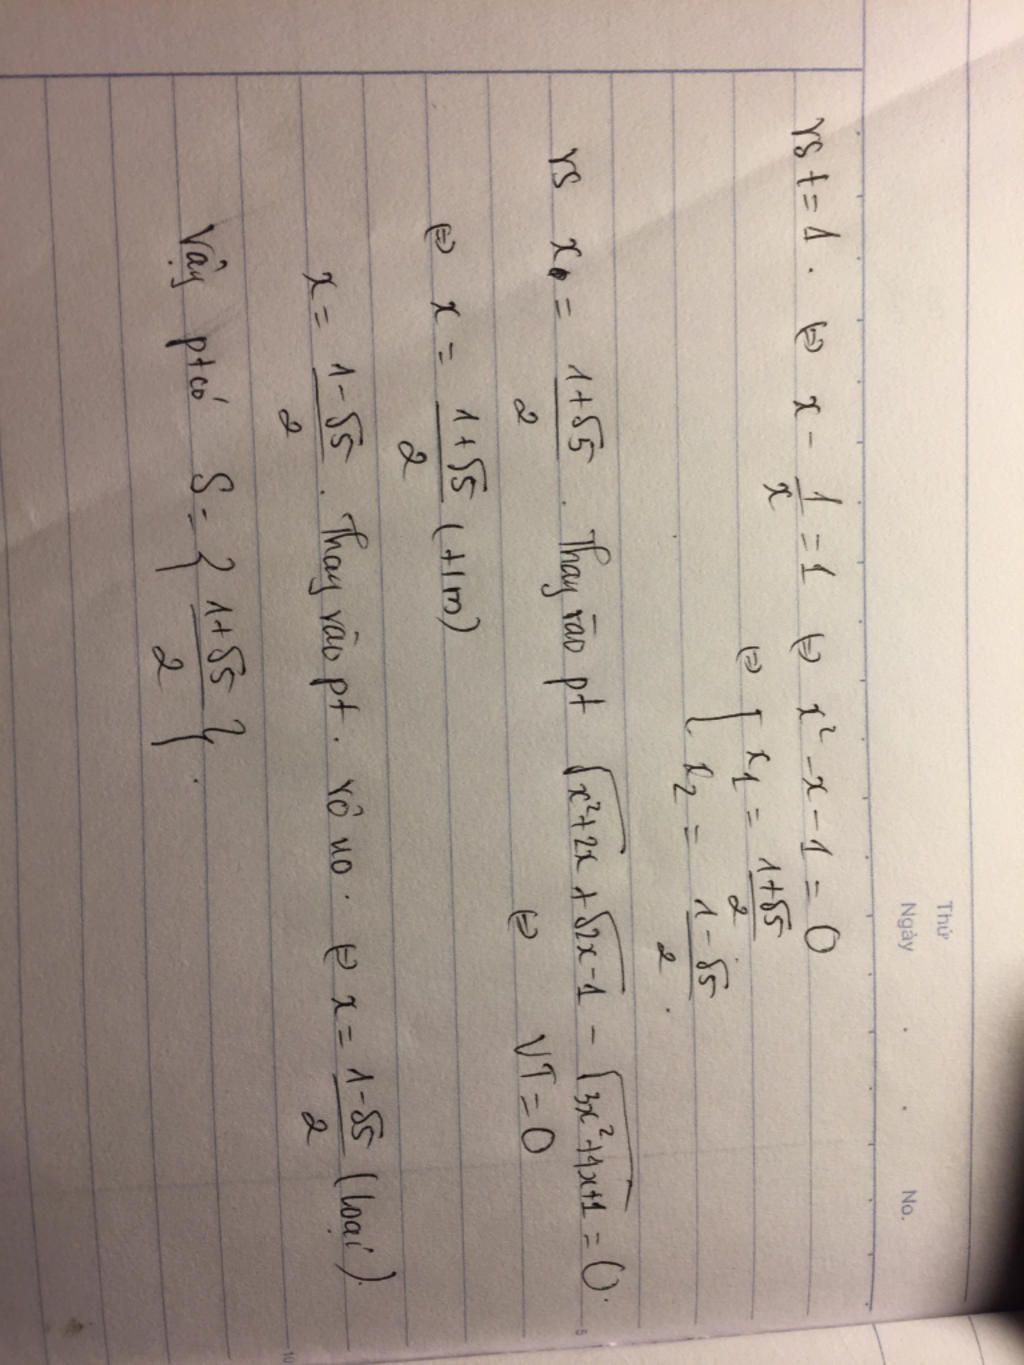 Thứ
Ngày . . No.
vs t = 1 . ⇔ x - 1/x = 1 ⇔ x² - x - 1 = 0
⇔ [ x₁ = (1+√5)/2
x₂ = (1-√5)/2 .
vs x = (1+√5)/2 . Thay vào pt √(x²+2x) + √(2x-1) - √(3x²+4x+1) = 0.
⇔ VT = 0
⇔ x = (1+√5)/2 (tm)
x = (1-√5)/2 . Thay vào pt . vô no . ⇔ x = (1-√5)/2 (loại).
Vậy pt có S = { (1+√5)/2 } .
5
10